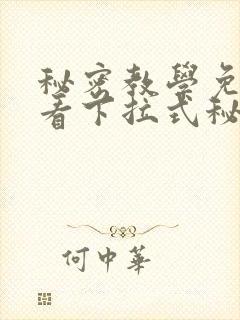 秘密教學免
看下拉式秘
何中華